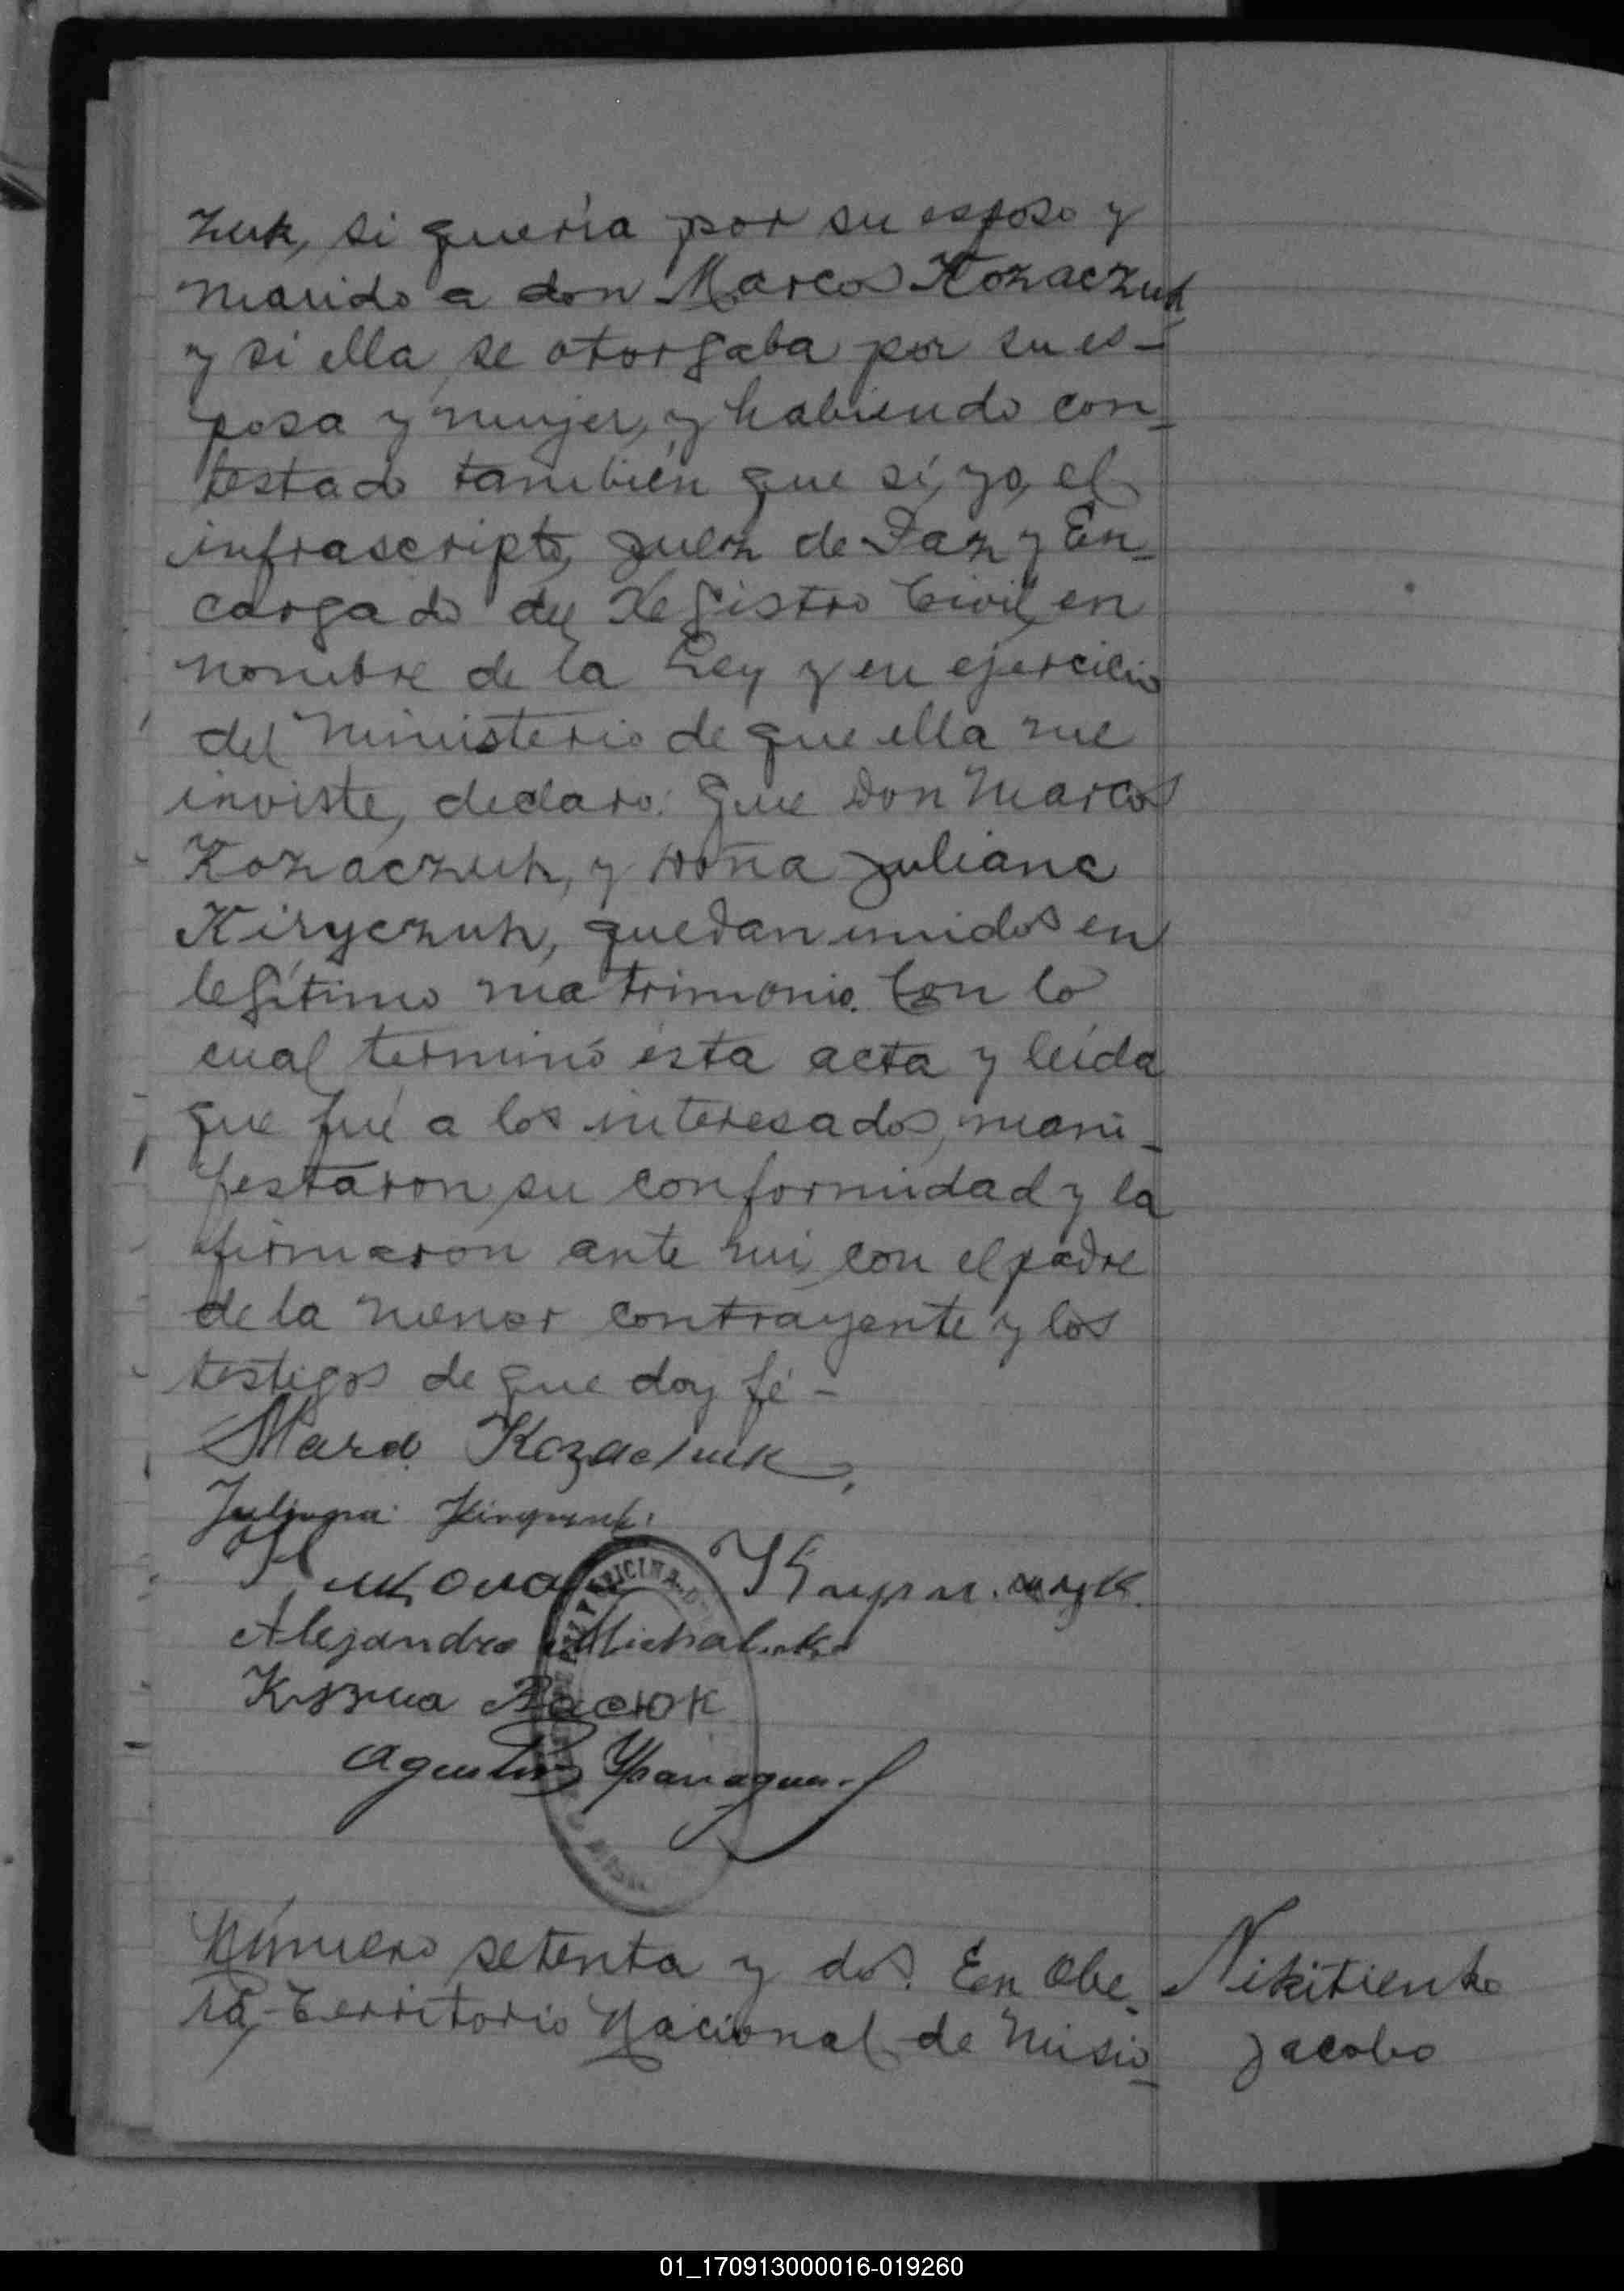 zuk, si quería por su esposo y
marido a don Marcos Kozaczuk
y si ella se otorgaba por su es-
posa y mujer, y habiendo con-
testado también que sí, yo, el
infrascripto, Juez de Paz y En-
cargado del Registro Civil, en
nombre de la Ley y en ejercicio
del Ministerio de que ella me
inviste, declaro: Que Don Marcos
Kozaczuk, y Doña Juliana
Kiryczuk, quedan unidos en
legítimo matrimonio. Con lo
cual terminó ésta acta y leída
que fué a los interesados, mani-
festaron su conformidad y la
firmaron ante mi, con el padre
de la menor contrayente y los
testigos de que doy fé -
Kozaczuk
Juliana
Alejandro
Кузма Васюк
Agustin
OFICINA
Número setenta y dos. En Obe-
rá, Territorio Nacional de Misio-
Nikitienko
Jacobo
01_170913000016-019260